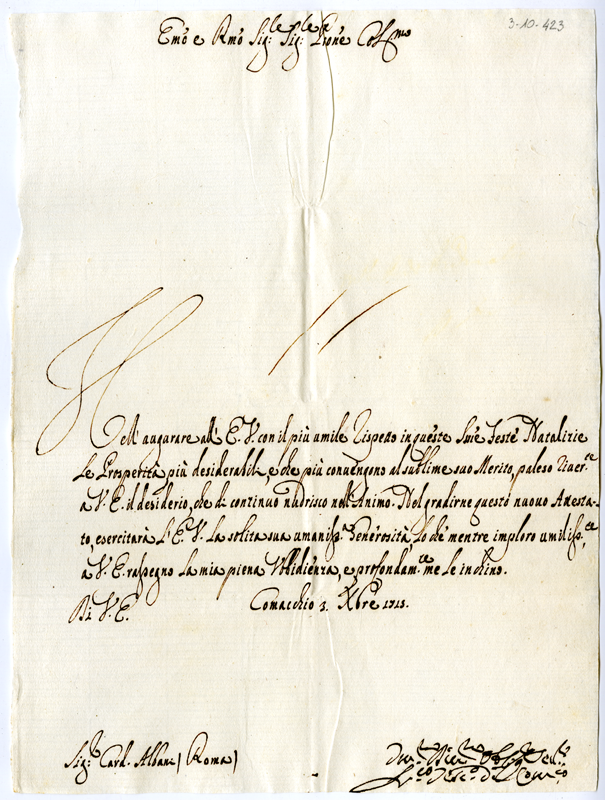 3-10-423
Emo e Rmo Sig:re Sig:re Prone Colmo
Nell' augurare all' E. V. con il più umile rispetto in queste Sme Feste Natalizie
le Prosperità più desiderabili, e che più convengono al sublime suo Merito, paleso river.te
a V. E. il desiderio, che di continuo nudrisco nell' Animo. Nel gradirne questo nuovo Attesta-
to, esercitarà l' E. V. la solita sua umaniss.a Generosità, lo che mentre imploro umiliss.te
a V. E. rassegno la mia piena Vbbidienza, e profondam.te me le inchino.
Di V. E. Comacchio 3. Xbre 1715.
Sig.r Card. Albani (Roma)